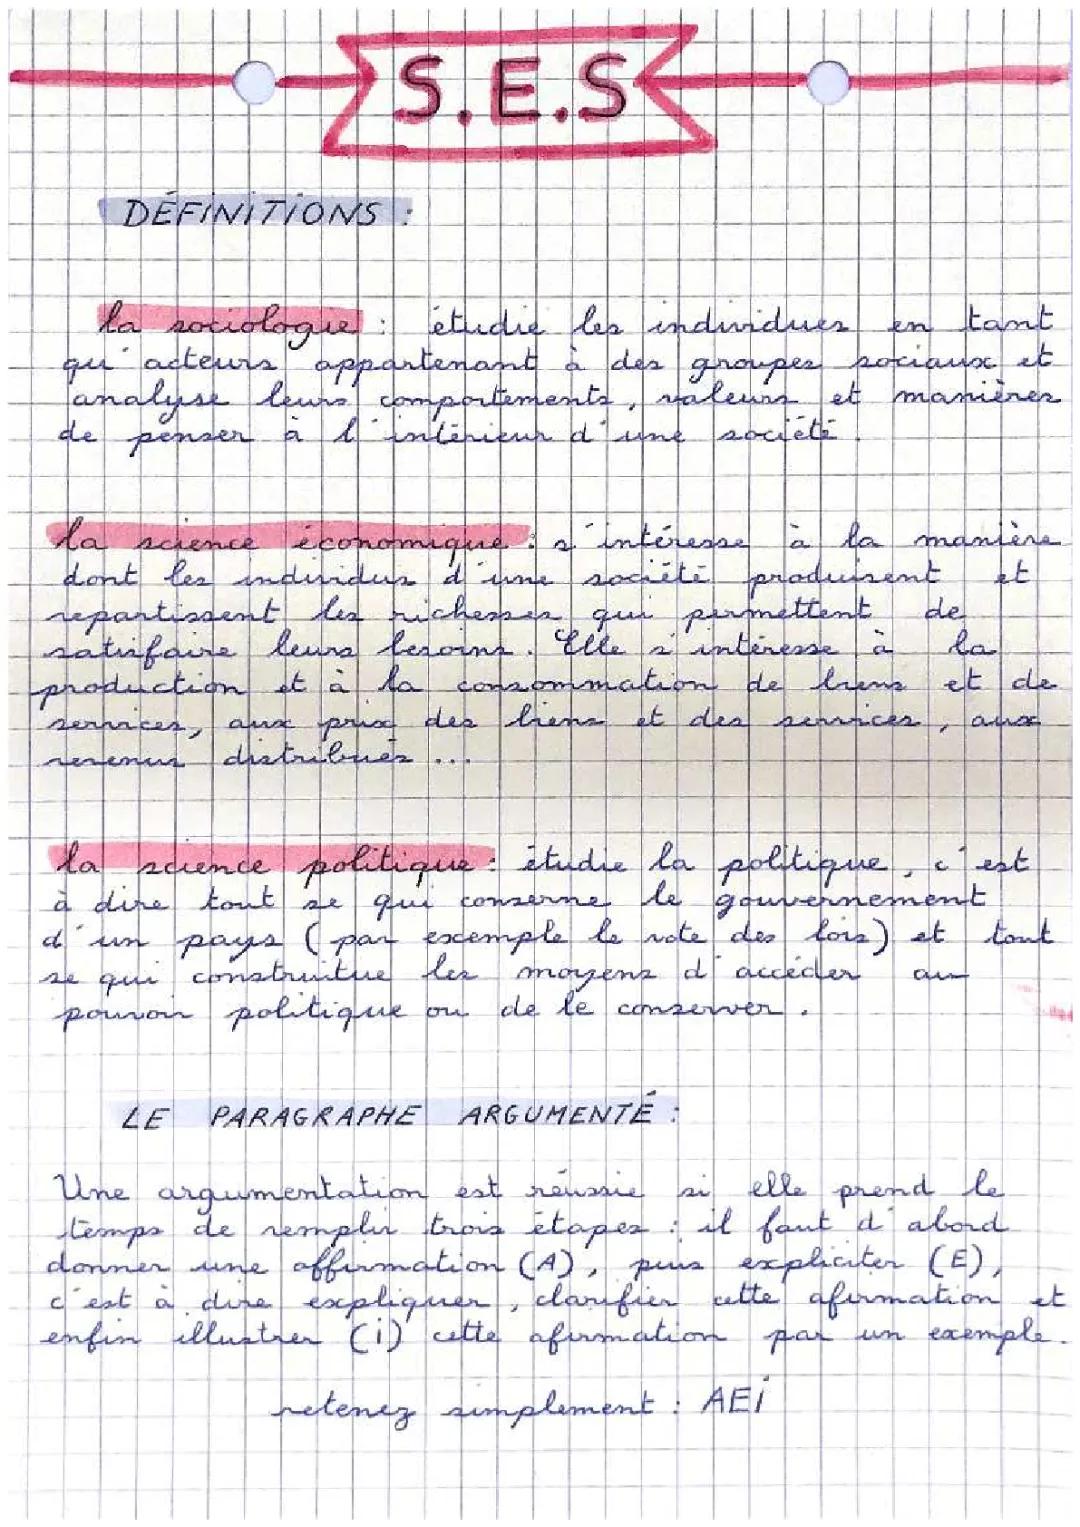 S.E.S
DÉFINITIONS :
la sociologie : étudie les individues en tant
qu'acteurs appartenant à des groupes sociaux et
analyse leurs comportements, valeurs et manières
de penser à l'intérieur d'une société.
la science économique : s'intéresse à la manière
dont les individus d'une société produisent et
repartissent les richesses qui permettent de
satisfaire leurs besoins. Elle s'intéresse à la
production et à la consommation de biens et de
services, aux prix des biens et des services, aux
revenus distribués ...
la science politique : étudie la politique, c'est
à dire tout se qui conserne le gouvernement
d'un pays (par exemple le vote des lois) et tout
se qui construitue les moyens d'accéder au
pouvoir politique ou de le conserver.
LE PARAGRAPHE ARGUMENTÉ :
Une argumentation est réussie si elle prend le
temps de remplir trois étapes : il faut d'abord
donner une affirmation (A), puis expliciter (E),
c'est à dire expliquer, clarifier cette afirmation et
enfin illustrer (i) cette afirmation par un exemple.
retenez simplement : AEi